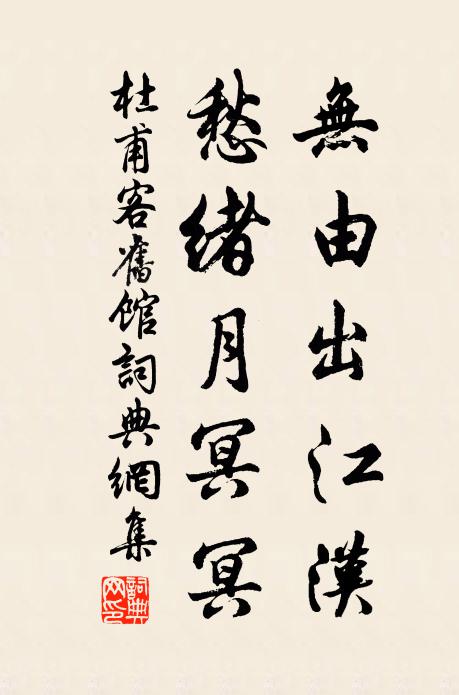 無由出江漢
愁緒月冥冥
杜甫客舊館詞典網集
詞典網印